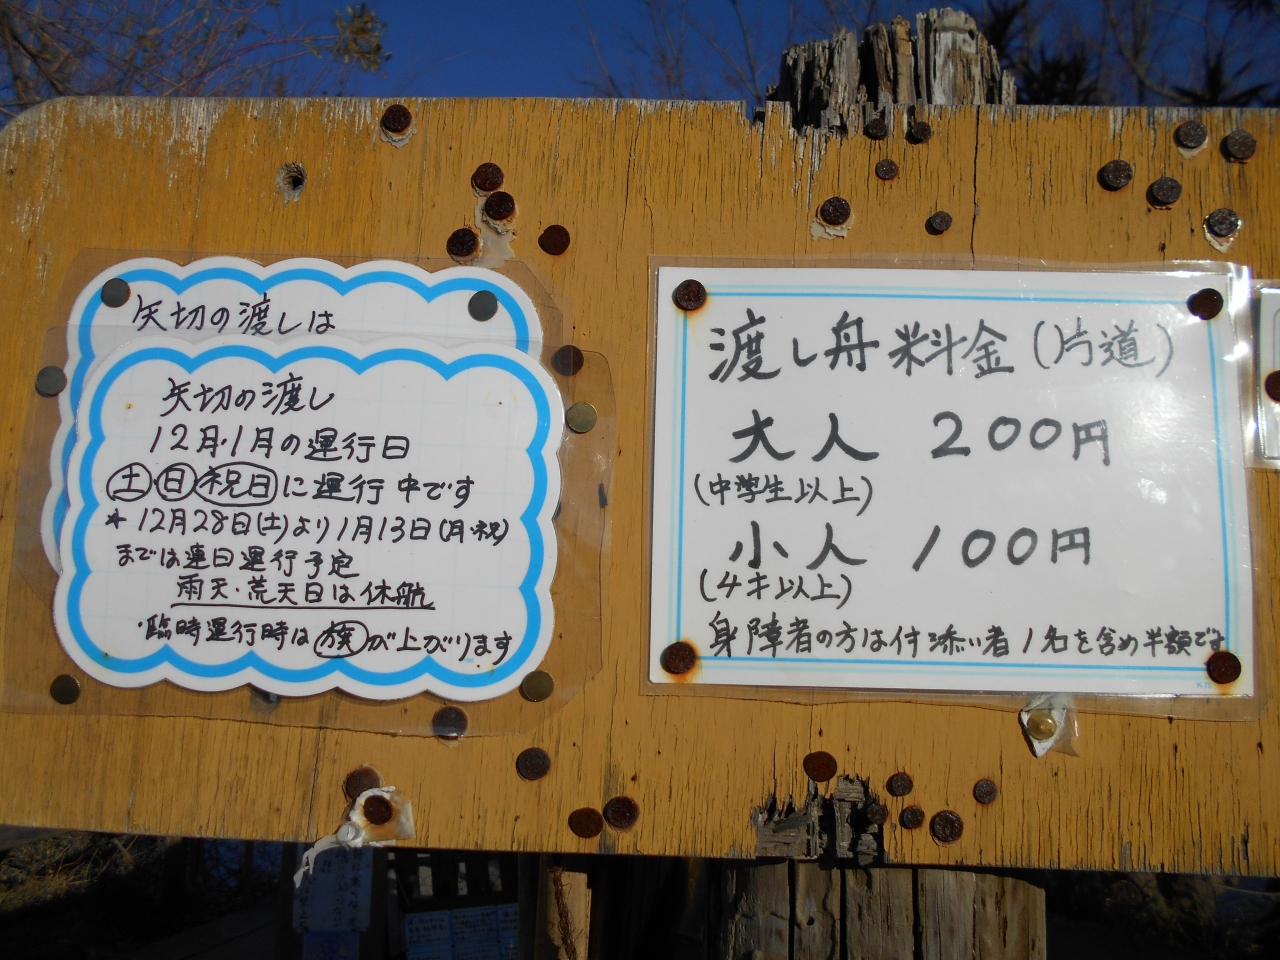 矢切の渡しは
矢切の渡し
12月・1月の運行日
土・日・祝日に運行中です
*12月28日(土)より1月13日(月・祝)
までは連日運行予定
雨天・荒天日は休航
・臨時運行時は旗が上がります
渡し舟料金(片道)
大人 200円
(中学生以上)
小人 100円
(4才以上)
身障者の方は付添い者1名を含め半額です